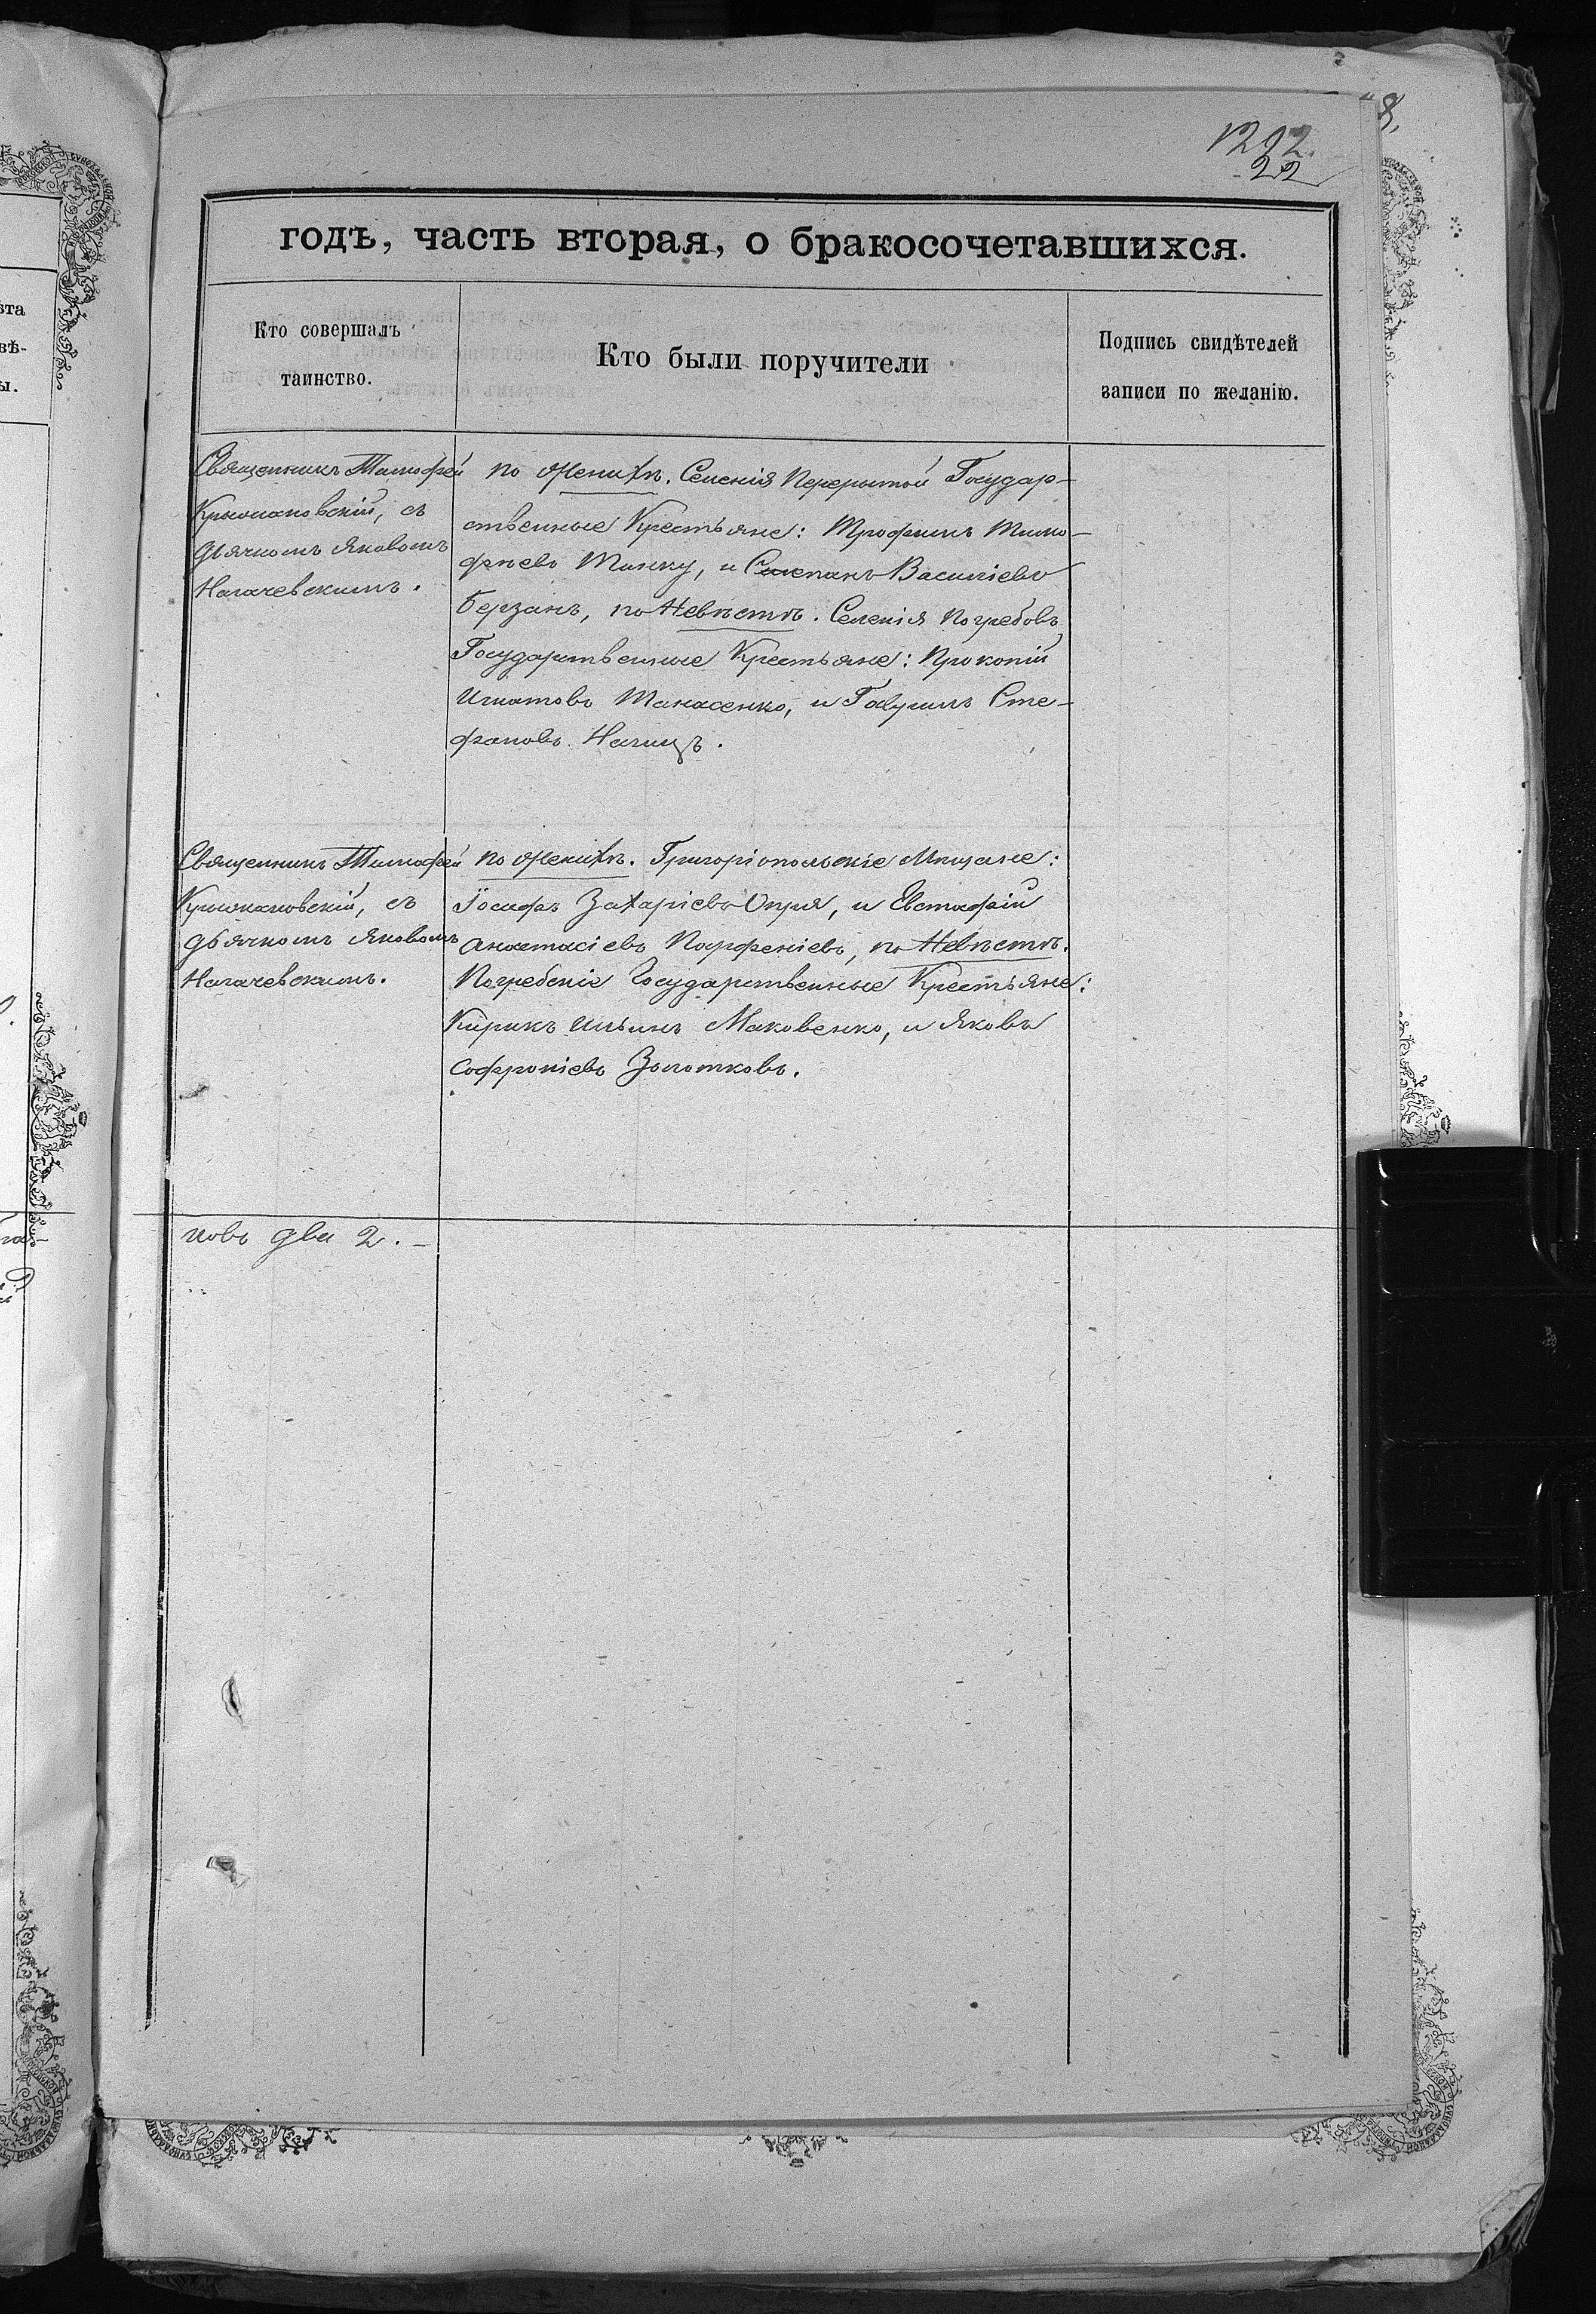 1292.
22
годѣ, часть вторая, о бракосочетавшихся.
Кто совершалъ
таинство.
Кто были поручители
Подпись свидѣтелей
записи по желанію.
Священникъ Тимофей
Крыжановскій, съ
дьячкомъ Яковомъ
Нагачевскимъ.
по Женихѣ. Селенія Перерытой Государ-
ственные Крестьяне: Трофимъ Тимо-
фѣевъ Танку, и Степанъ Василіевъ
Берзанъ, по Невѣстѣ. Селенія Погребовъ
Государственные Крестьяне: Прокопій
Игнатовъ Танасенко, и Гавриилъ Сте-
фановъ
Священникъ Тимофей
Крыжановскій, съ
дьячкомъ Яковомъ
Нагачевскимъ.
по Женихѣ. Григоріопольскіе Мѣщане:
Іосифъ Захаріевъ Опря, и Евстафій
Анастасіевъ Парфеніевъ, по Невѣстѣ.
Погребскіе Государственные Крестьяне:
Кирикъ Ильинъ Маковенко, и Яковъ
Софроніевъ Золотковъ.
ковъ два 2. –